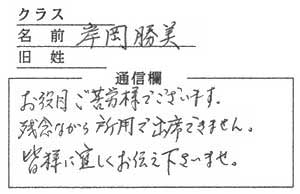 クラス
名前 岸岡勝美
旧姓
通信欄
お役目ご苦労様でございます。
残念ながら所用で出席できません。
皆様に宜しくお伝え下さいませ。